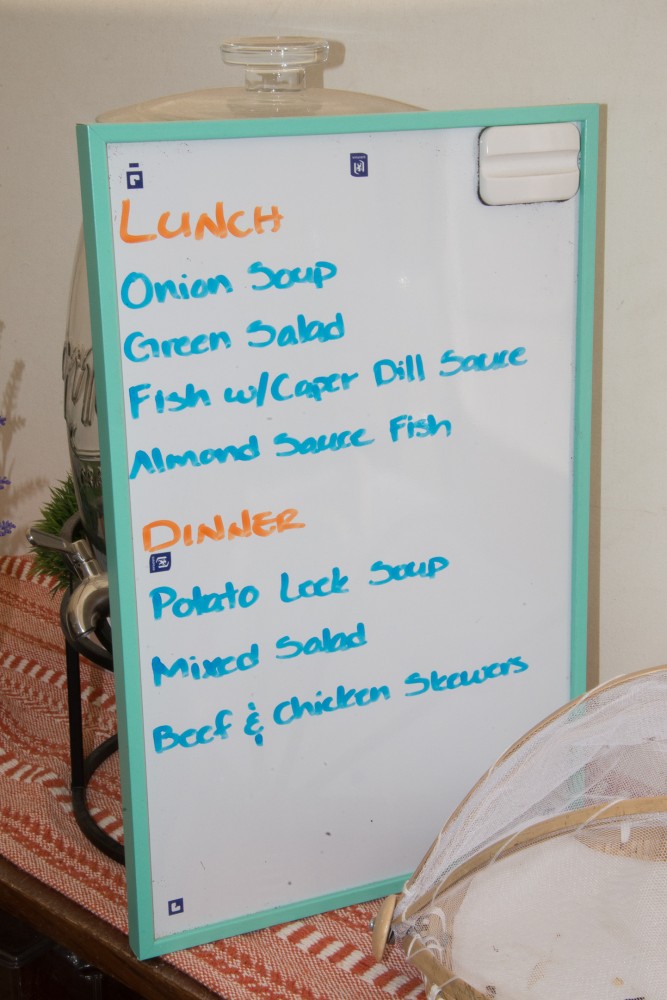 LUNCH
Onion Soup
Green Salad
Fish w/Caper Dill Sauce
Almond Sauce Fish
DINNER
Potato Leek Soup
Mixed Salad
Beef & Chicken Skewers